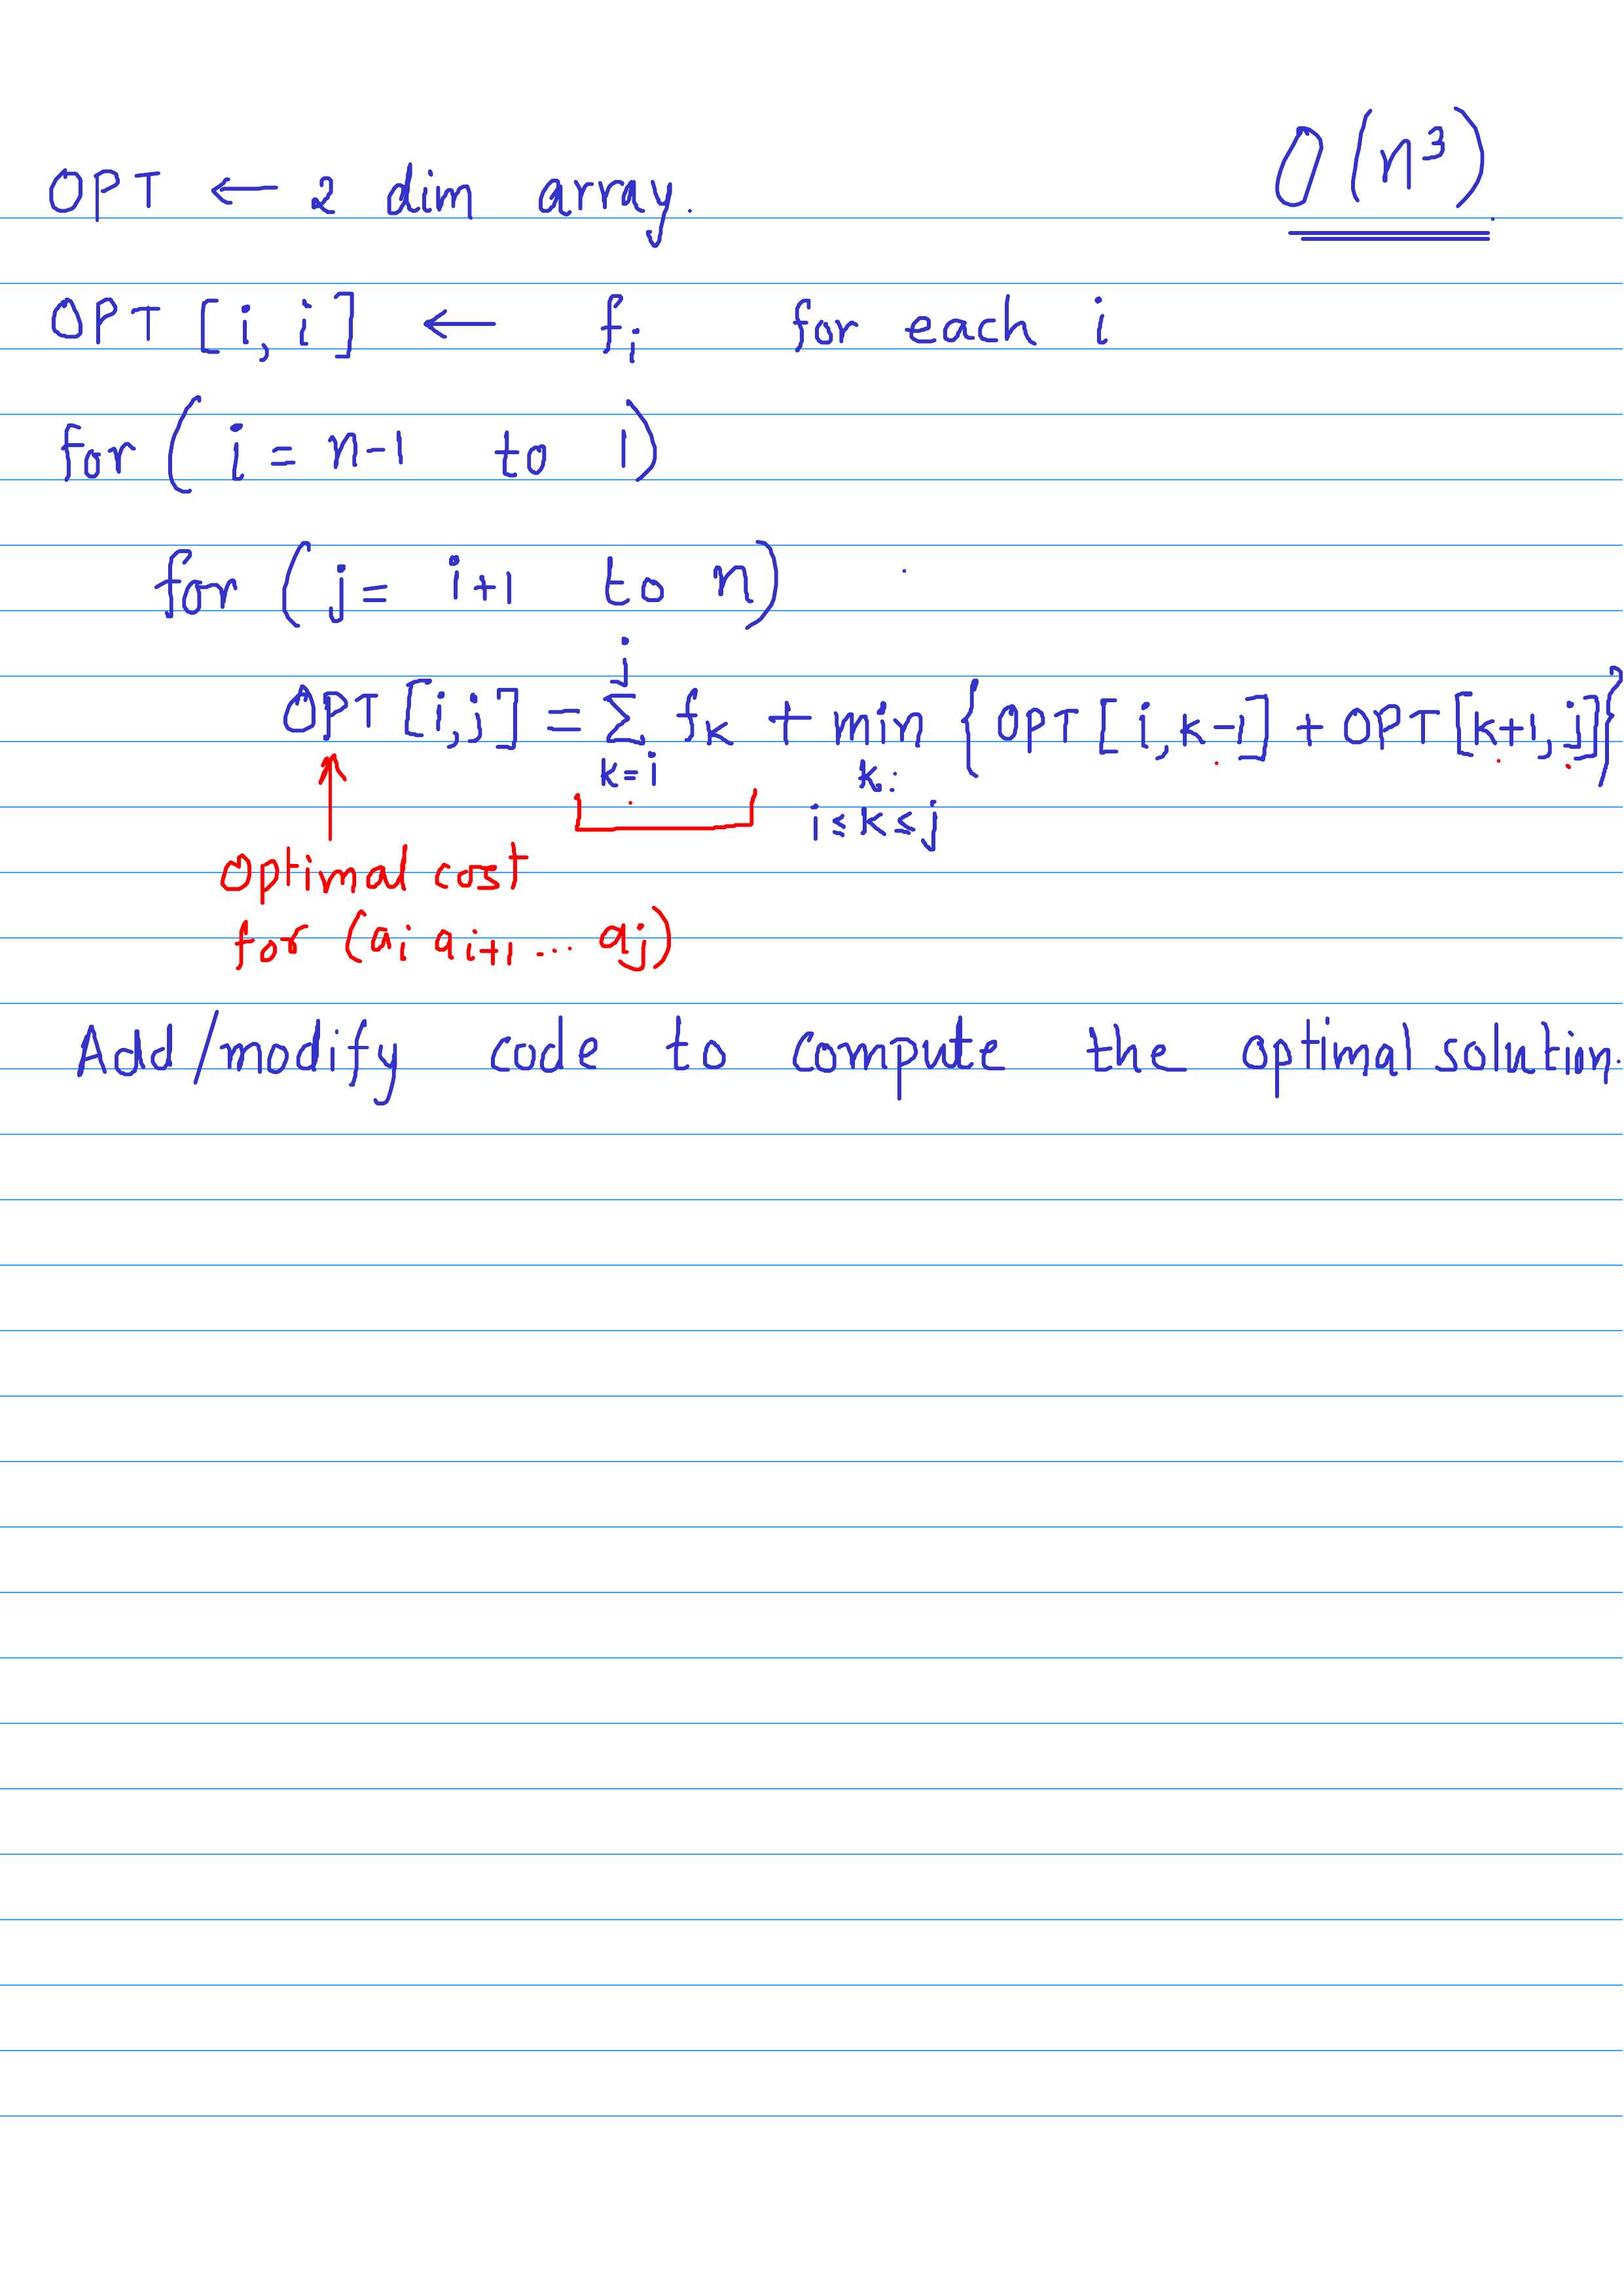 O(n³).
OPT ← 2 dim array.
OPT [i, i] ← fᵢ for each i
for ( i = n-1 to 1)
for ( j = i+1 to n)
OPT [i,j] = ∑_{k=i}^{j} f_k + min_{k: i≤k≤j} { OPT [i,k-1] + OPT [k+1,j] }
optimal cost
for (aᵢ aᵢ₊₁ ... aⱼ)
Add/modify code to compute the optimal solution.